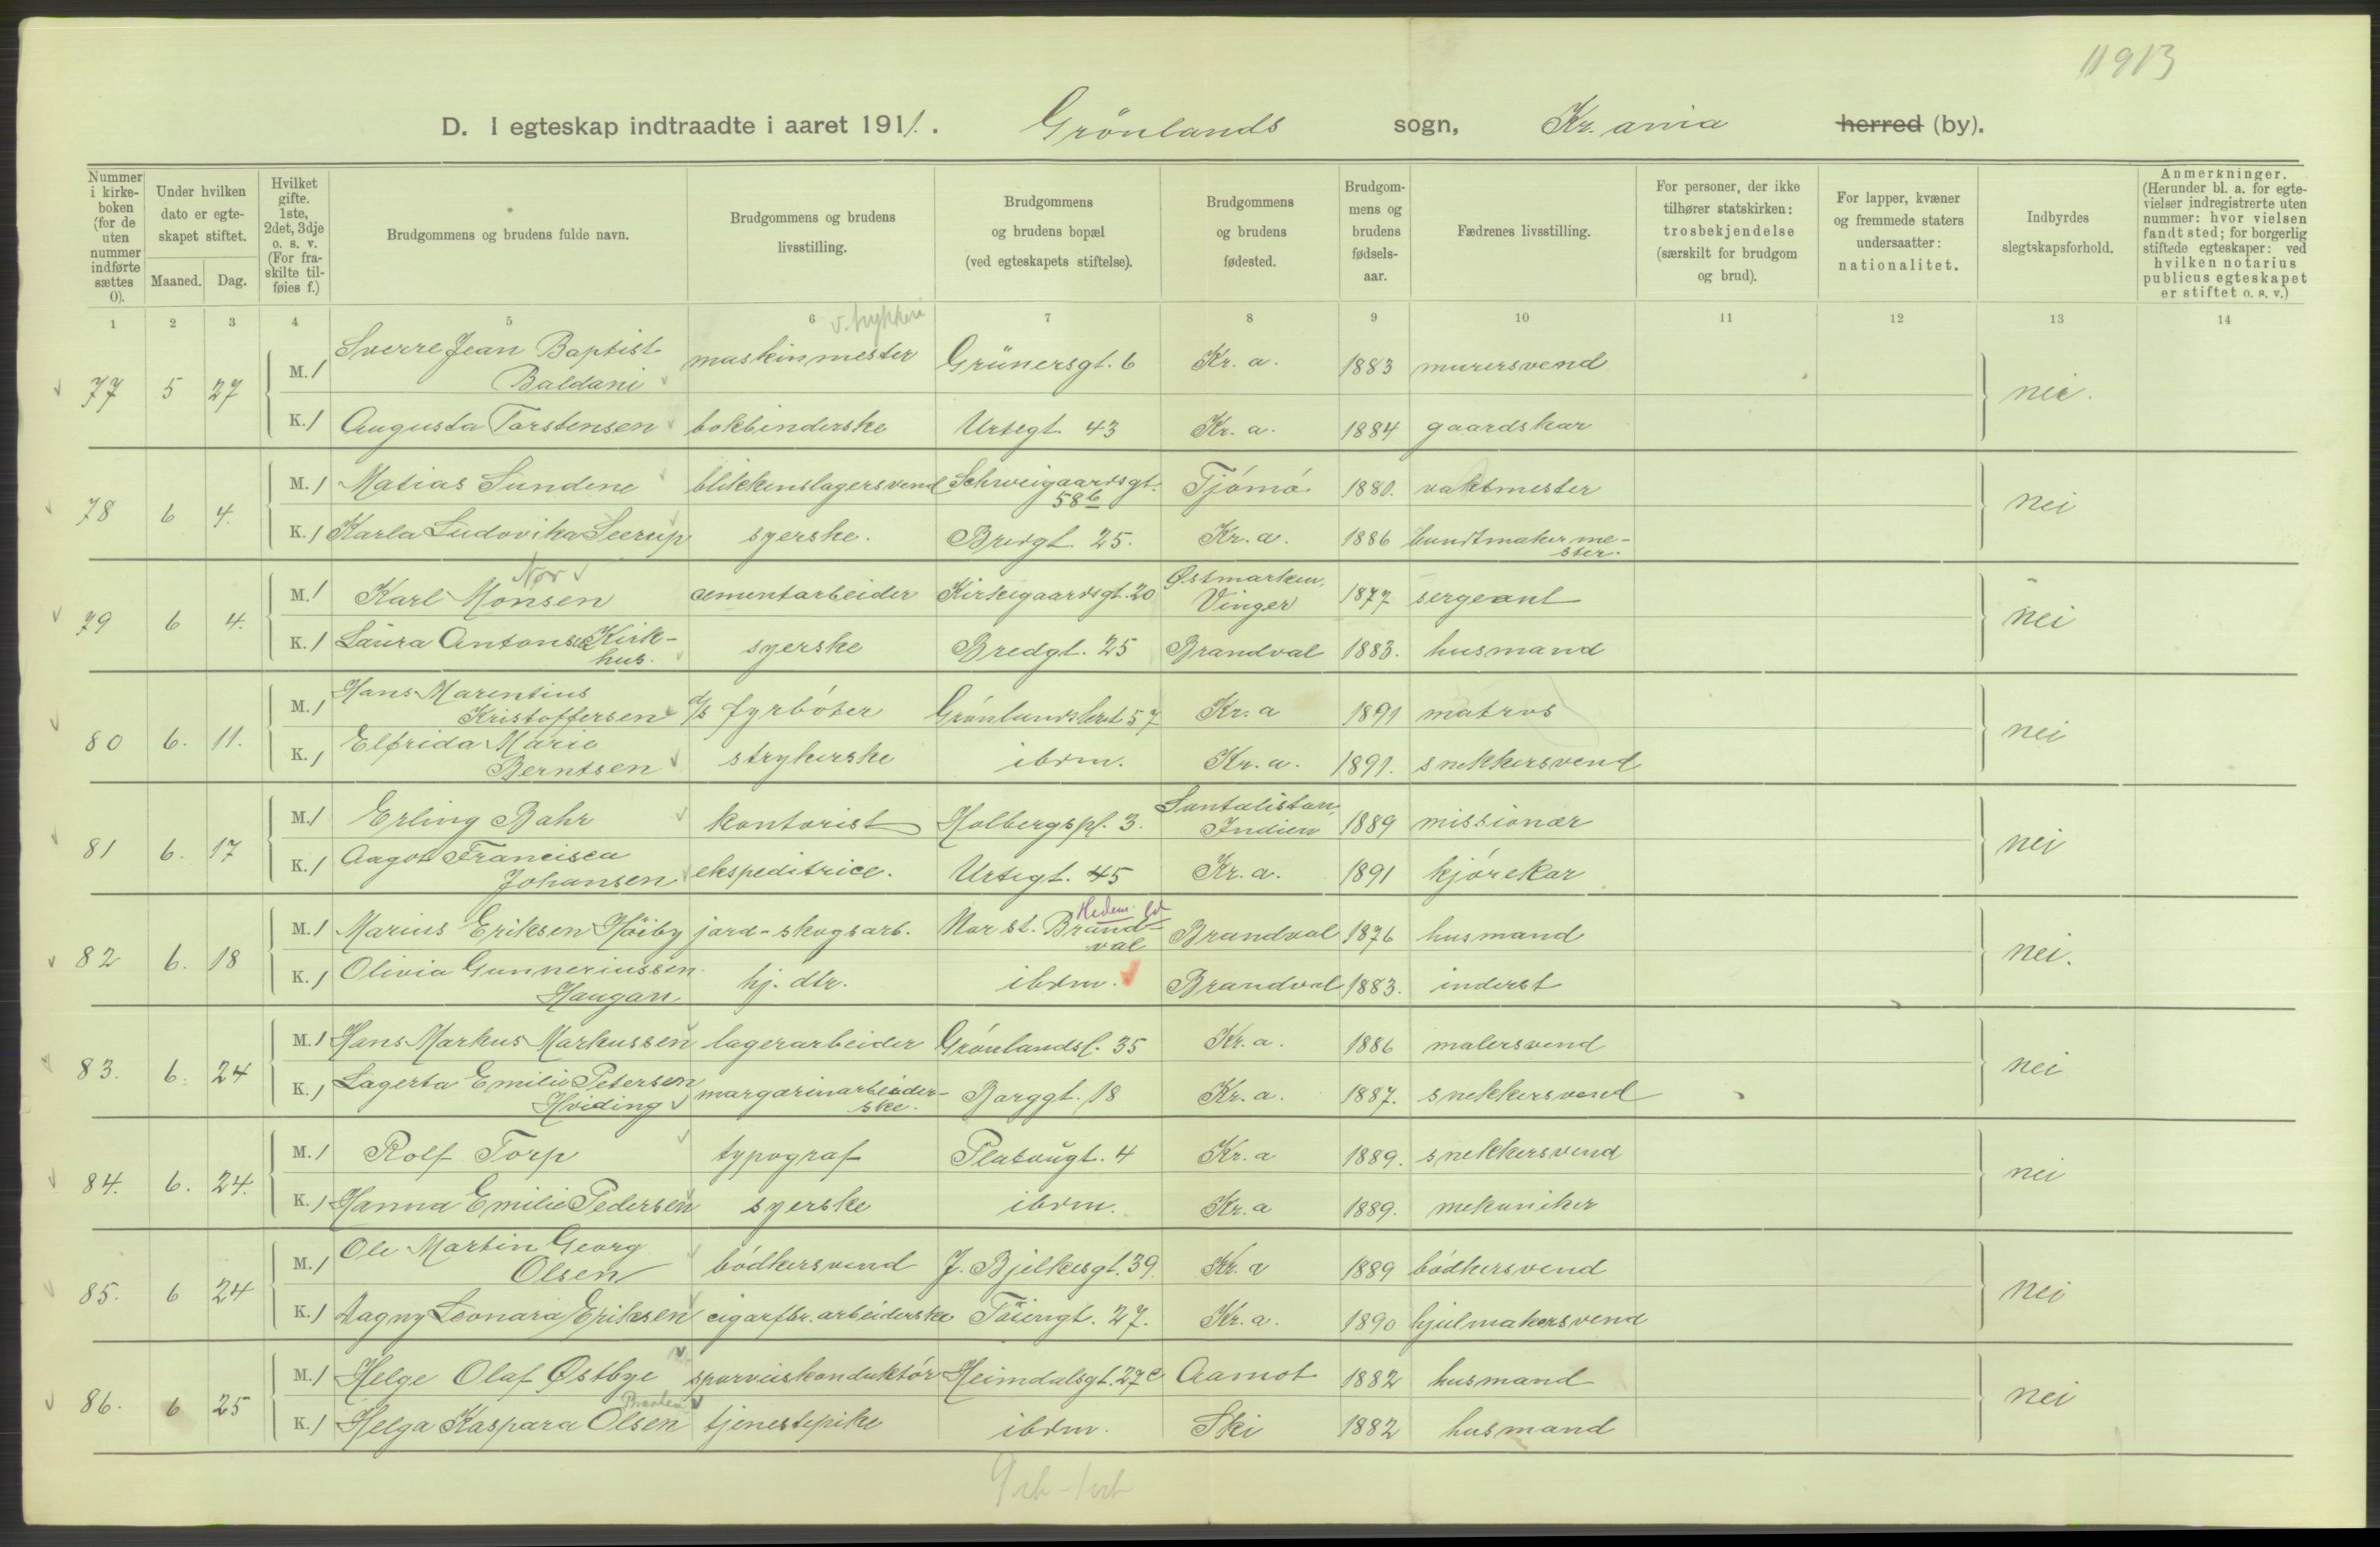 11913
D. I egteskap indtraadte i aaret 1911. Grönlands sogn, Kr.ania herred (by).
Nummer i kirkeboken (for de uten nummer indførte sættes 0).
Under hvilken dato er egteskapet stiftet.
Maaned. Dag.
Hvilket gifte. 1ste, 2det, 3dje o. s. v. (For fraskilte tilføies f.)
Brudgommens og brudens fulde navn.
Brudgommens og brudens livsstilling.
Brudgommens og brudens bopæl (ved egteskapets stiftelse).
Brudgommens og brudens fødested.
Brudgommens og brudens fødselsaar.
Fædrenes livsstilling.
For personer, der ikke tilhører statskirken: trosbekjendelse (særskilt for brudgom og brud).
For lapper, kvæner og fremmede staters undersaatter: nationalitet.
Indbyrdes slegtskapsforhold.
Anmerkninger. (Herunder bl. a. for egtevielser indregistrerte uten nummer: hvor vielsen fandt sted; for borgerlig stiftede egteskaper: ved hvilken notarius publicus egteskapet er stiftet o. s. v.)
1 2 3 4 5 6 7 8 9 10 11 12 13 14
v. trykkeri
77 5 27 M. 1 Sverre Jean Baptist Baldani maskinmester Grünersgt. 6 Kr. a. 1883 murersvend nei.
K. 1 Augusta Torstensen bokbinderske Urtegt. 43 Kr. a. 1884 gaardskar
78 6 4. M. 1 Matias Sundene blikkenslagersvend Schweigaardsgt. 58b Tjömö 1880. vaktmester nei
K. 1 Karla Ludovika Seerup syerske. Bredgt. 25. Kr. a. 1886 bundtmakermester.
79 6 4. M. 1 Karl Monsen Nor cementarbeider Kirkegaardsgt. 20 Østmarken, Vinger 1877 sergeant nei
K. 1 Laura Antonsen Kirkhus. syerske Bredgt. 25 Brandval 1883. husmand
80 6. 11. M. 1 Hans Marentius Kristoffersen d/s fyrböter Grönlandsleret 57 Kr. a 1891 matros nei
K. 1 Elfrida Marie Berntsen strykerske ibdm. Kr. a. 1891. snekkersvend
81 6. 17 M. 1 Erling Bahr kontorist Holbergspl. 3. Santalistan, Indien 1889 missionær nei
K. 1 Aagot Francisca Johansen ekspeditrice. Urtegt. 45 Kr. a. 1891 kjörekar
82 6. 18 M. 1 Marius Eriksen Höiby jord-skogsarb. Nor st. Brandval Hedem. Brandval 1876 husmand nei.
K. 1 Olivia Gunneriussen Haugan hj. dtr. ibdm. Brandval 1883. inderst
83. 6. 24 M. 1 Hans Markus Markussen lagerarbeider Grönlandsl. 35 Kr. a. 1886 malersvend nei
K. 1 Lagerta Emilie Petersen Hviding margarinarbeiderske. Borggt. 18 Kr. a. 1887. snekkersvend
84. 6. 24. M. 1 Rolf Torp typograf Platougt. 4 Kr. a 1889. snekkersvend nei
K. 1 Hanna Emilie Pedersen syerske ibdm. Kr. a 1889. mekaniker
85. 6 24 M. 1 Ole Martin Georg Olsen bödkersvend J. Bjelkesgt. 39. Kr. a 1889 bödkersvend nei
K. 1 Dagny Leonara Eriksen cigarfbr. arbeiderske Töiengt. 27. Kr. a. 1890 hjulmakersvend
86. 6 25 M. 1 Helge Olaf Østbye sporveiskonduktör Heimdalsgt. 27c Aamot 1882 husmand nei
K. 1 Helga Kaspara Olsen tjenestepike ibdm. Ski 1882 husmand